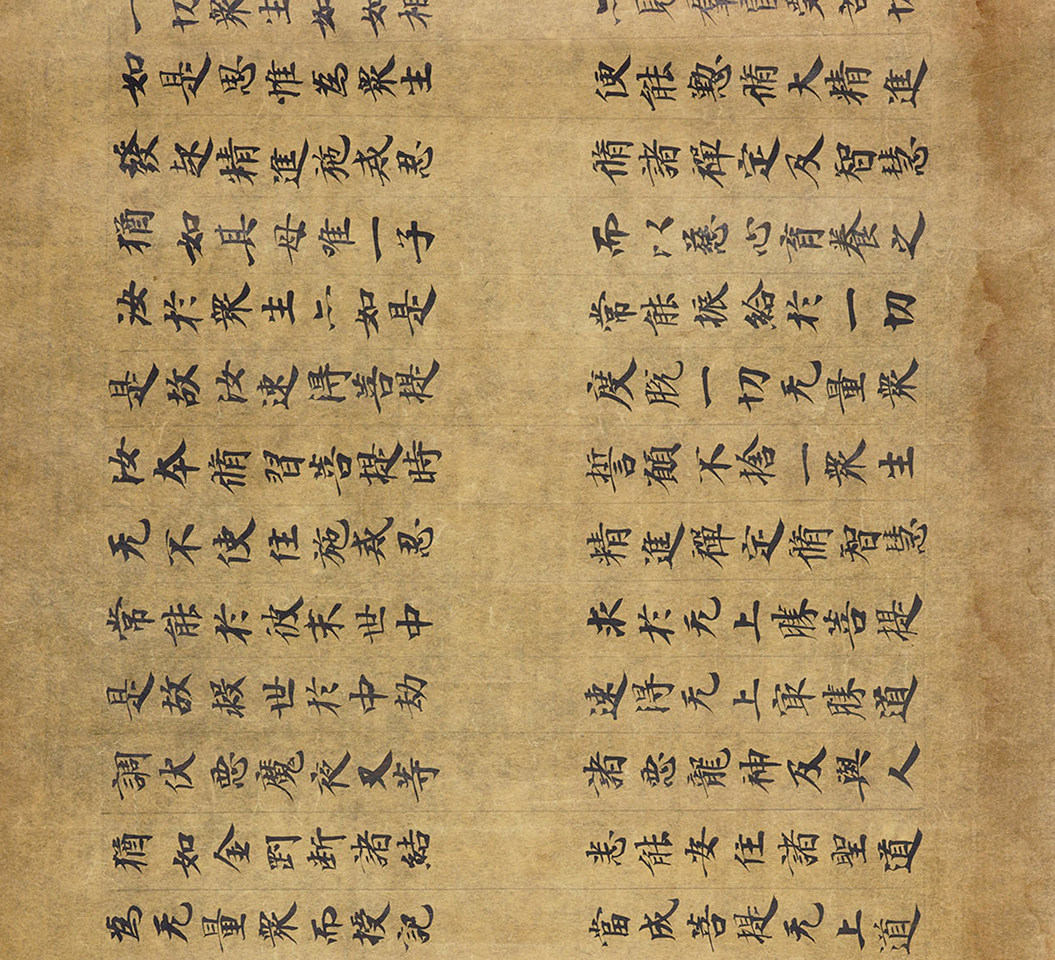 一切衆生如如相
如是思惟為衆生　便能懃脩大精進
發起精進施戒忍　脩諸禪定及智慧
猶如其母唯一子　而以慈心育養之
汝於衆生亦如是　常能振給於一切
是故汝速得菩提　度脫一切无量衆
汝本脩習菩提時　誓願不捨一衆生
无不使住施戒忍　精進禪定脩智慧
常能於彼末世中　求於无上勝菩提
是故救世於中劫　速得无上冣勝道
調伏惡魔夜叉等　諸惡龍神及與人
猶如金剛断諸結　悉能安住諸聖道
為无量衆而授記　當成菩提无上道